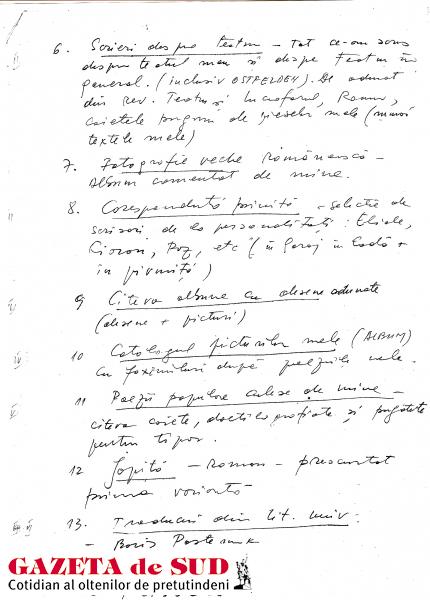 6. Scrieri despre teatru – Tot ce-am scris
despre teatrul meu și despre teatru în
general. (inclusiv OSTFELDEN). De adunat
din rev. Teatru și Luceafărul, Ramuri,
caietele program de pieselor mele (numai
textele mele)
7. Fotografie veche românească –
Album comentat de mine.
8. Corespondență primită – selecție de
scrisori de la personalități: Eliade,
Cioran, Paz, etc (în garaj în ladă +
în pivniță)
9 Cîteva albume cu desene adunate
(desene + picturi)
10 Catalogul picturilor mele (ALBUM)
cu facsimiluri după poeziile mele.
11 Poezii populare culese de mine –
cîteva caiete, dactilografiate și pregătite
pentru tipar.
12 Șopîța – roman – prescurtat
prima variantă
13. Traduceri din lit. univ.
– Boris Pasternak
GAZETA de SUD
Cotidian al oltenilor de pretutindeni